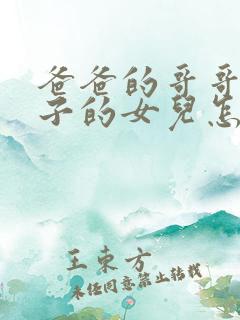 爸爸的哥哥
子的女兒怎
王東方
未经同意禁止转载